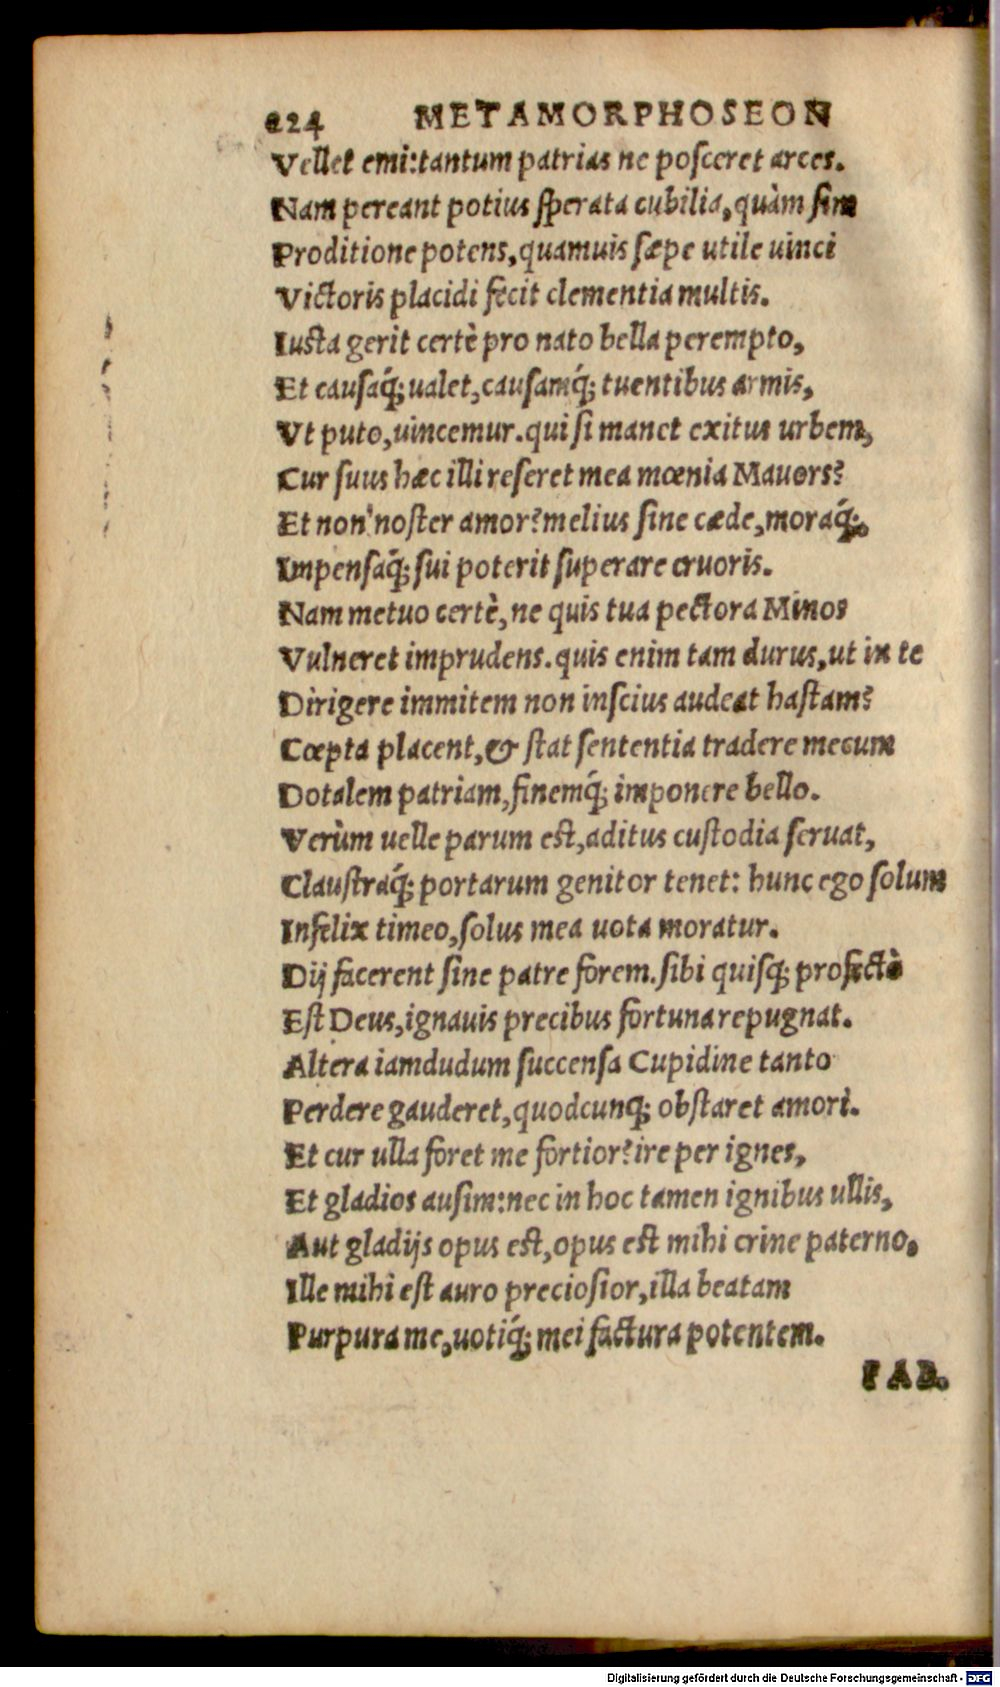 224 METAMORPHOSEON
Vellet emi:tantum patrias ne posceret arces.
Nam pereant potius sperata cubilia,quàm sim
Proditione potens,quamuis sæpe utile uinci
Victoris placidi fecit clementia multis.
Iusta gerit certè pro nato bella perempto,
Et causaq́; ualet,causamq́; tuentibus armis,
Vt puto,uincemur.qui si manet exitus urbem,
Cur suus hæc illi reseret mea mœnia Mauors?
Et non noster amor?melius sine cæde,moraq́;,
Impensaq́; sui poterit superare cruoris.
Nam metuo certè,ne quis tua pectora Minos
Vulneret imprudens.quis enim tam durus,ut in te
Dirigere immitem non inscius audeat hastam?
Cœpta placent,& stat sententia tradere mecum
Dotalem patriam,finemq́; imponere bello.
Verùm uelle parum est,aditus custodia seruat,
Claustraq́; portarum genitor tenet: hunc ego solum
Infelix timeo,solus mea uota moratur.
Dij facerent sine patre forem.sibi quisq; profectò
Est Deus,ignauis precibus fortuna repugnat.
Altera iamdudum succensa Cupidine tanto
Perdere gauderet,quodcunq; obstaret amori.
Et cur ulla foret me fortior?ire per ignes,
Et gladios ausim:nec in hoc tamen ignibus ullis,
Aut gladijs opus est,opus est mihi crine paterno.
Ille mihi est auro preciosior,illa beatam
Purpura me,uotiq́; mei factura potentem.
FAB.
Digitalisierung gefördert durch die Deutsche Forschungsgemeinschaft - DFG